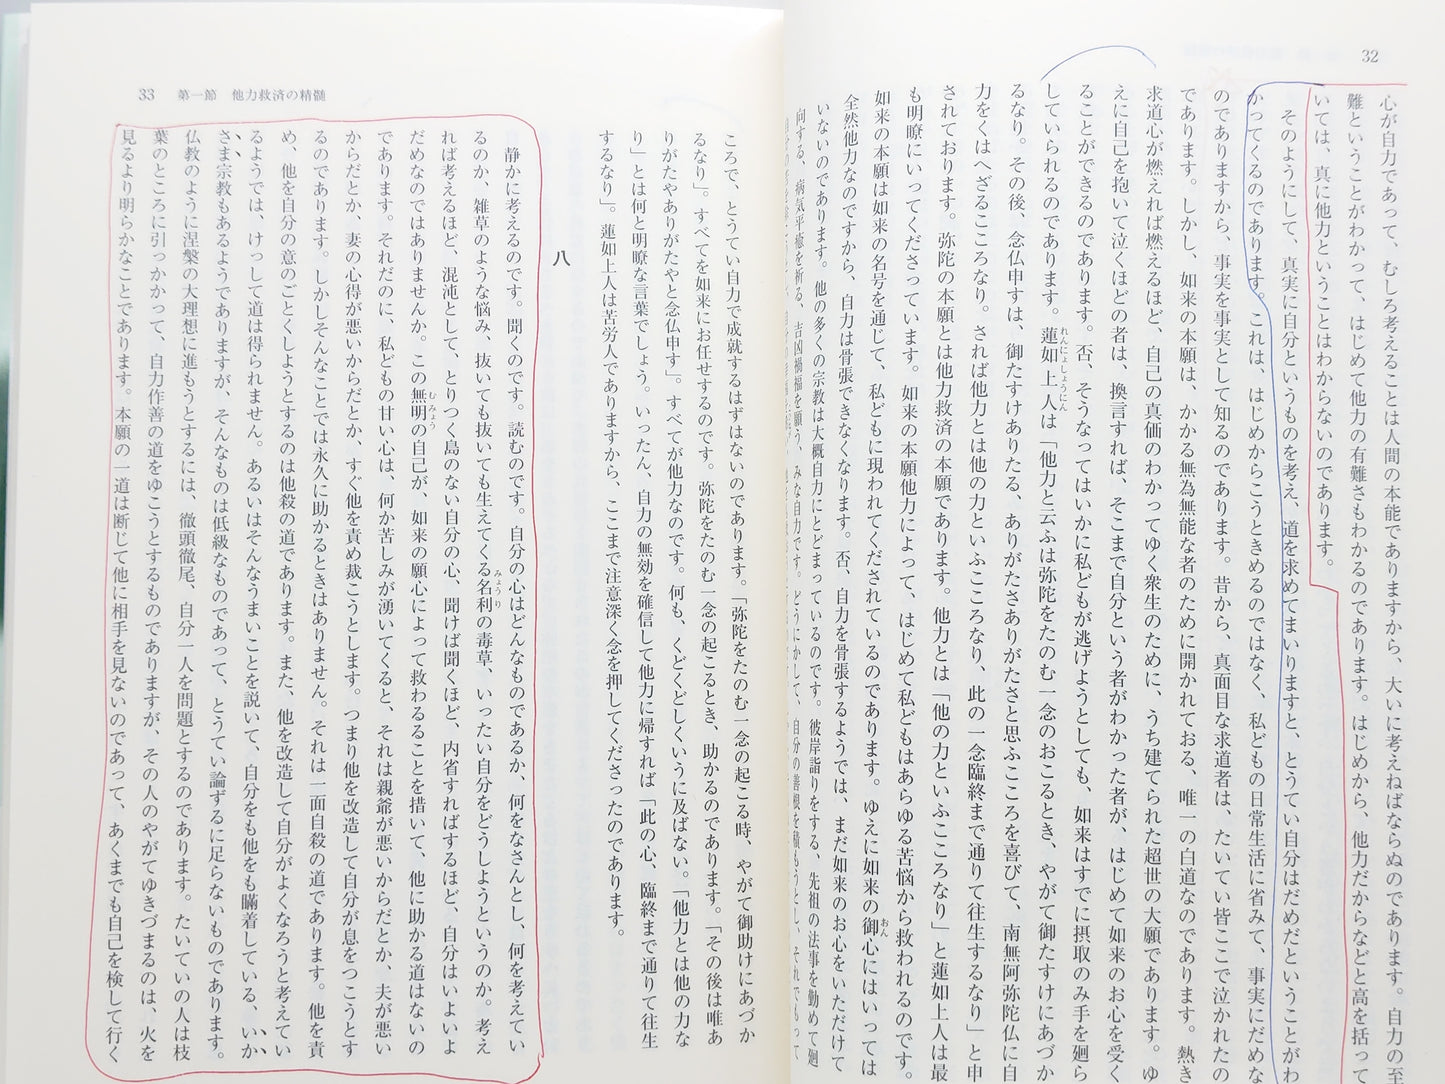 32
心が自力であって、むしろ考えることは人間の本能でありますから、大いに考えねばならぬのであります。自力の至
難ということがわかって、はじめて他力の有難さもわかるのであります。はじめから、他力だからなどと高を括って
いては、真に他力ということはわからないのであります。
そのようにして、真実に自分というものを考え、道を求めてまいりますと、とうてい自分はだめだということがわ
かってくるのであります。これは、はじめからこうときめるのではなく、私どもの日常生活に省みて、事実にだめな
のでありますから、事実を事実として知るのであります。昔から、真面目な求道者は、たいてい皆ここで泣かれたの
であります。しかし、如来の本願は、かかる無為無能な者のために開かれておる、唯一の白道なのであります。熱き
求道心が燃えれば燃えるほど、自己の真価のわかってゆく衆生のために、うち建てられた超世の大願であります。ゆ
えに自己を抱いて泣くほどの者は、換言すれば、そこまで自分という者がわかった者が、はじめて如来のお心を受く
ることができるのであります。否、そうなってはいかに私どもが逃げようとしても、如来はすでに摂取のみ手を廻ら
していられるのであります。蓮如上人は「他力と云ふは弥陀をたのむ一念のおこるとき、やがて御たすけにあづか
るなり。その後、念仏申すは、御たすけありたる、ありがたさありがたさと思ふこころを喜びて、南無阿弥陀仏に自
力をくはへざるこころなり。されば他力とは他の力といふこころなり、此の一念臨終まで通りて往生するなり」と申
されております。弥陀の本願とは他力救済の本願であります。他力とは「他の力といふこころなり」と蓮如上人は最
も明瞭にいってくださっています。如来の本願他力によって、はじめて私どもはあらゆる苦悩から救われるのです。
如来の本願は如来の名号を通じて、私どもに現われてくだされているのであります。ゆえに如来の御心にはいっては
全然他力なのですから、自力は骨張できなくなります。否、自力を骨張するようでは、まだ如来のお心をいただけて
いないのであります。他の多くの宗教は大概自力にとどまっているのです。彼岸詣りをする、先祖の法事を勤めて廻
向する、病気平癒を祈る、吉凶禍福を願う、みな自力です。どうにかして、自分の善根を積もうとし、それでもって
33　第一節　他力救済の精髄
ころで、とうてい自力で成就するはずはないのであります。「弥陀をたのむ一念の起こる時、やがて御助けにあづか
るなり」。すべてを如来にお任せするのです。弥陀をたのむ一念の起こるとき、助かるのであります。「その後は唯あ
りがたやありがたやと念仏申す」。すべてが他力なのです。何も、くどくどしくいうに及ばない。「他力とは他の力な
り」とは何と明瞭な言葉でしょう。いったん、自力の無効を確信して他力に帰すれば「此の心、臨終まで通りて往生
するなり」。蓮如上人は苦労人でありますから、ここまで注意深く念を押してくださったのであります。
八
静かに考えるのです。聞くのです。読むのです。自分の心はどんなものであるか、何をなさんとし、何を考えてい
るのか、雑草のような悩み、抜いても抜いても生えてくる名利の毒草、いったい自分をどうしようというのか。考え
れば考えるほど、混沌として、とりつく島のない自分の心、聞けば聞くほど、内省すればするほど、自分はいよいよ
だめなのではありませんか。この無明の自己が、如来の願心によって救わるることを措いて、他に助かる道はないの
であります。それだのに、私どもの甘い心は、何か苦しみが湧いてくると、それは親爺が悪いからだとか、夫が悪い
からだとか、妻の心得が悪いからだとか、すぐ他を責め裁こうとします。つまり他を改造して自分が息をつこうとす
るのであります。しかしそんなことでは永久に助かるときはありません。それは一面自殺の道であります。他を責
め、他を自分の意のごとくしようとするのは他殺の道であります。また、他を改造して自分がよくなろうと考えてい
るようでは、けっして道は得られません。あるいはそんなうまいことを説いて、自分をも他をも瞞着している、いか
さま宗教もあるようでありますが、そんなものは低級なものであって、とうてい論ずるに足らないものであります。
仏教のように涅槃の大理想に進もうとするには、徹頭徹尾、自分一人を問題とするのであります。たいていの人は枝
葉のところに引っかかって、自力作善の道をゆこうとするものでありますが、その人のやがてゆきづまるのは、火を
見るより明らかなことであります。本願の一道は断じて他に相手を見ないのであって、あくまでも自己を検して行く